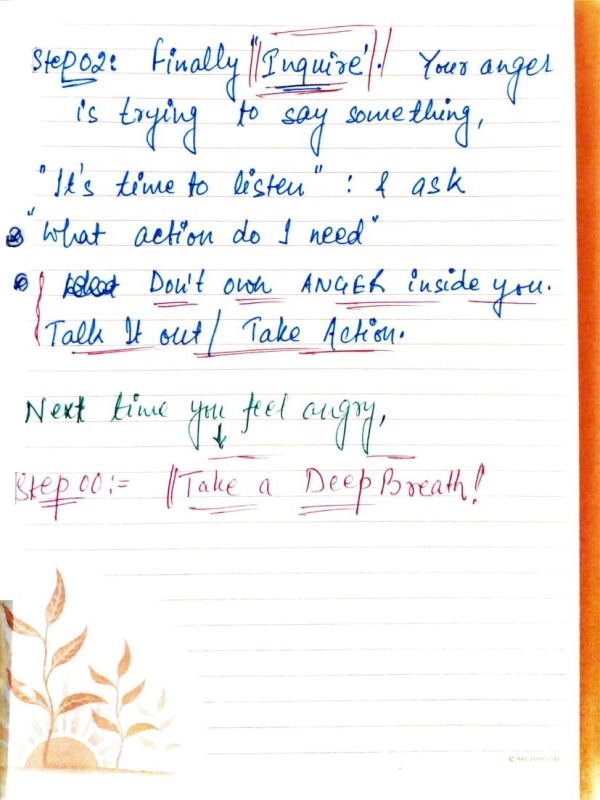 Step02: Finally "Inquire". Your anger
is trying to say something,
"It's time to listen" : & ask
"What action do I need"
Don't own ANGER inside you.
Talk It out / Take Action.
Next time you feel angry,
Step 00:- Take a Deep Breath!